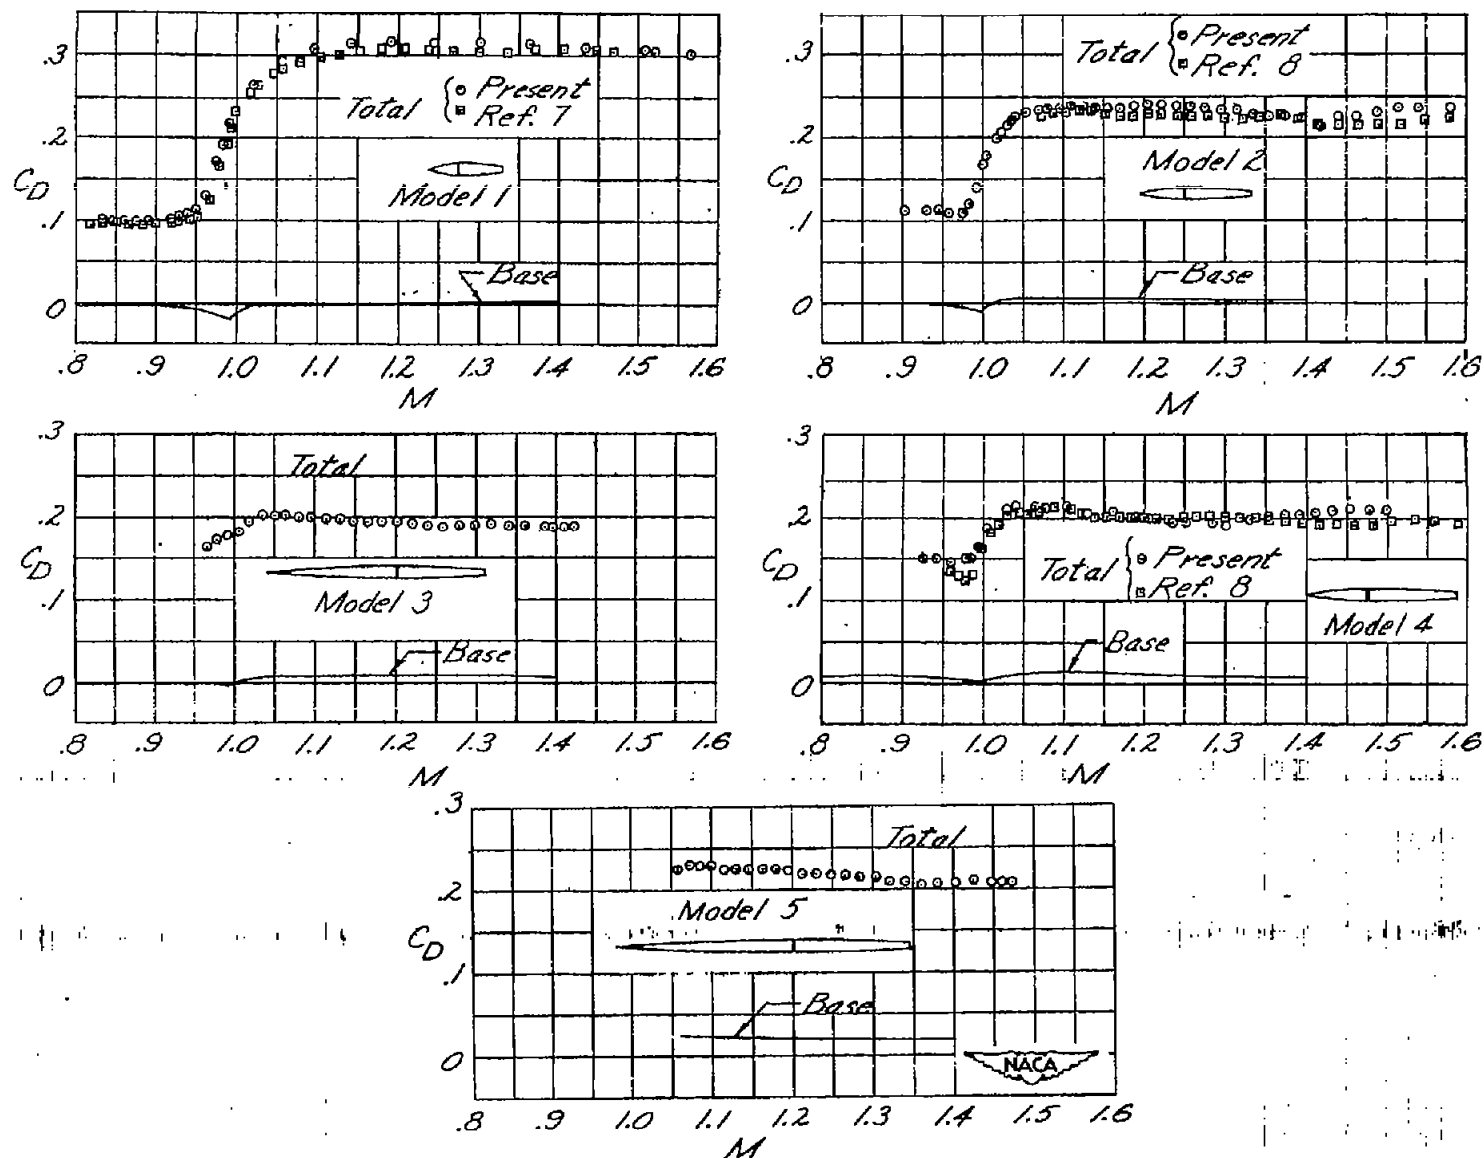 .3
.2
.1
0
C_D
Total { ⊙ Present
⊡ Ref. 7
Model 1
Base
.8 .9 1.0 1.1 1.2 1.3 1.4 1.5 1.6
M
.3
.2
.1
0
C_D
Total { ⊙ Present
⊡ Ref. 8
Model 2
Base
.8 .9 1.0 1.1 1.2 1.3 1.4 1.5 1.6
M
.3
.2
.1
0
C_D
Total
Model 3
Base
.8 .9 1.0 1.1 1.2 1.3 1.4 1.5 1.6
M
.3
.2
.1
0
C_D
Total { ⊙ Present
⊡ Ref. 8
Model 4
Base
.8 .9 1.0 1.1 1.2 1.3 1.4 1.5 1.6
M
.3
.2
.1
0
C_D
Total
Model 5
Base
NACA
.8 .9 1.0 1.1 1.2 1.3 1.4 1.5 1.6
M